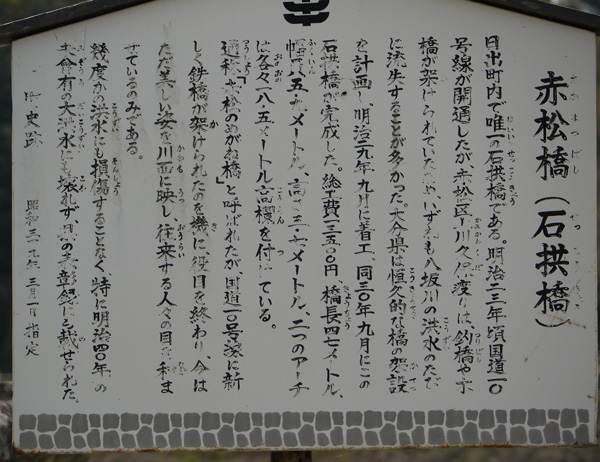 赤松橋(石拱橋)
日出町内で唯一の石拱橋である。明治二三年頃国道一〇
号線が開通したが赤松区平川久保渡りは、釣橋や
橋が架けられていた いずれも八坂川の洪水のたび
に流失することが多かった。大分県は恒久的な橋の架設
を計画し、明治二九年九月に着工、同三〇年九月にこの
石拱橋が完成した。総工費一三五〇〇円 橋長四七メートル、
幅 八・五メートル、高さ三・七メートル、二つのアーチ
は各々一八・五メートル高欄を付けている。
通称「赤松のめがね橋」と呼ばれたが、国道一〇号線に新
しく鉄橋が架けられたのを機に、役目を終わり、今は
ただ美しい姿を川面に映し、往来する人々の目を和ま
せているのみである。
幾度かの洪水にも損傷することなく、特に明治四〇年の
未曾有の大洪水にも破れず と載せられた。
町史跡 昭和三九年三月一日指定